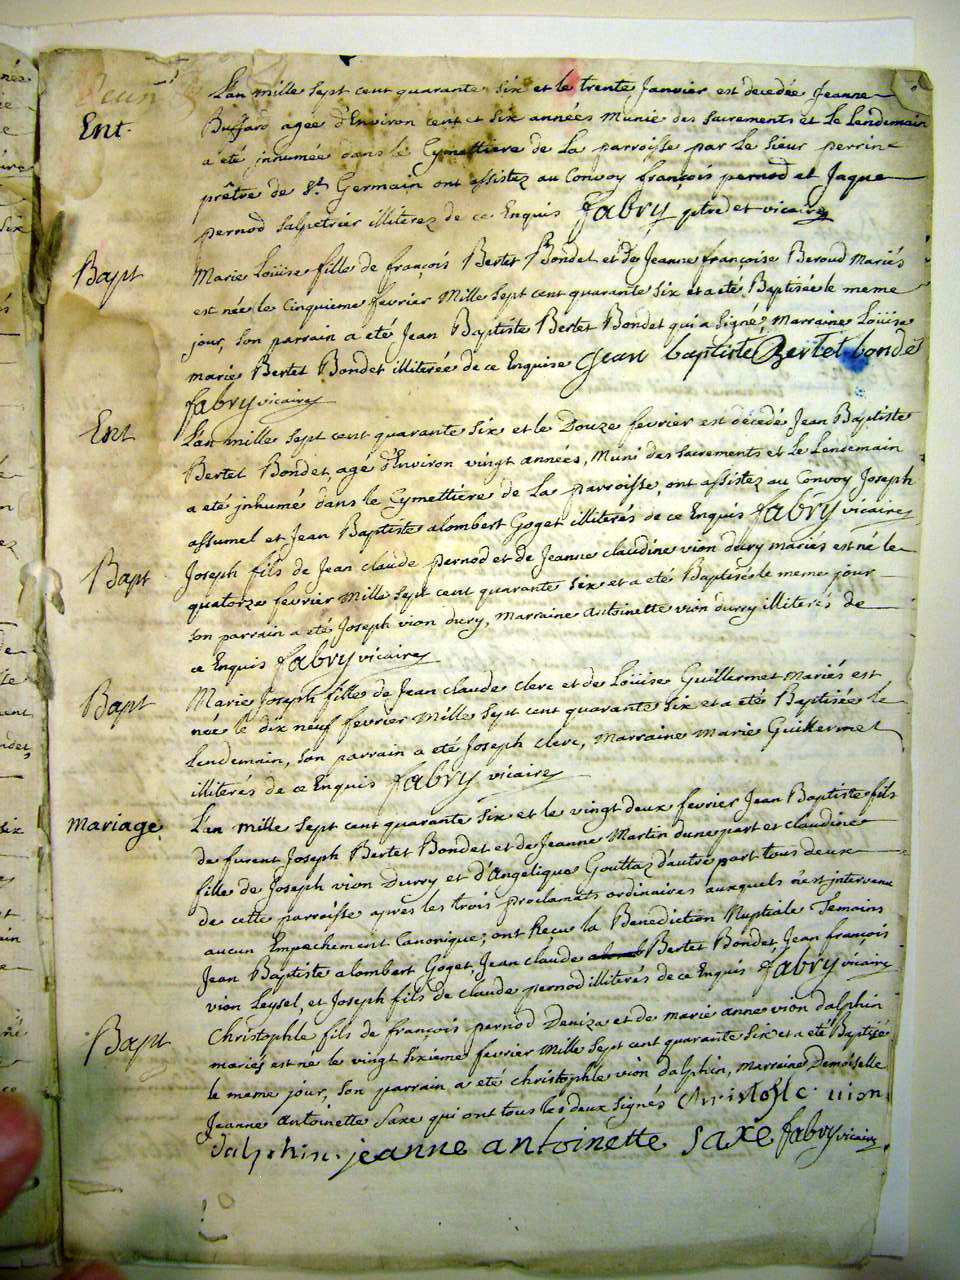 Ent. L'an mille sept cent quarante six et le trente Janvier est decedée Jeanne
Buffard agee d'Environ cent et six années munie des Sacrements et le Lendemain
a été jnhumée dans le Cymettiere de La parroisse par Le Sieur perrin
prêtre de St Germain ont assistez au Convoy françois pernod et Jaque
pernod Salpetrier illiterez de ce Enquis fabry ptre et vicaire
Bapt Marie Loüise fille de françois Bertet Bondet et de Jeanne françoise Beroud mariés
est née le Cinquieme fevrier Mille Sept cent quarante Six et a eté Baptisée le meme
jour, Son parrain a eté Jean Baptiste Bertet Bondet qui a signé, Marraine Loüise
marie Bertet Bondet illiterée de ce Enquise Jean baptiste Bertet bondet
fabry vicaire
Ent L'an mille Sept cent quarante Six et le Douze fevrier est decedé Jean Baptiste
Bertet Bondet, age d'Environ vingt années, Muni des Sacrements et Le Lendemain
a eté jnhumé dans le Cymettiere de La parroisse, ont assistez au Convoy Joseph
assumel et Jean Baptiste alombert Goget illiterés de ce Enquis fabry vicaire
Bapt Joseph fils de Jean claude pernod et de Jeanne claudine vion dury mariés est né le
quatorze fevrier Mille Sept cent quarante Six et a eté Baptisé le meme jour
Son parrain a eté Joseph vion dury, Marraine antoinette vion durry illiterés de
ce Enquis fabry vicaire
Bapt Marie Joseph fille de Jean claude clerc et de Loüise Guillermet Mariés est
née le dix neuf fevrier Mille Sept cent quarante Six et a eté Baptisée le
lendemain, Son parrain a eté Joseph clerc, Marraine Marie Guillermet
illiterés de ce Enquis fabry vicaire
Mariage L'an Mille Sept cent quarante Six et le vingt deux fevrier Jean Baptiste fils
de furent Joseph Bertet Bondet et de Jeanne Martin dune part et claudine
fille de Joseph vion Durry et d'Angelique Gouttaz d'autre part tous deux
de cette parroisse apres les trois proclamats ordinaires auxquels n'est intervenu
aucun Empechement Canonique, ont Recu la Benediction Nuptiale Temains
Jean Baptiste alombert Goget, Jean claude Bertet Bondet, Jean françois
vion Leysel, et Joseph fils de claude pernod illiterés de ce Enquis fabry vicaire
Bapt Christophle fils de françois pernod Deniza et de marie anne vion dalphin
mariés est né le vingt Sixieme fevrier Mille Sept cent quarante Six et a eté Baptisé
le meme jour, Son parrain a eté christophle vion dalphin, marraine Demoiselle
Jeanne Antoinette Saxe qui ont tous les deux Signés Christofle vion
dalphin. jeanne antoinette saxe fabry vicaire